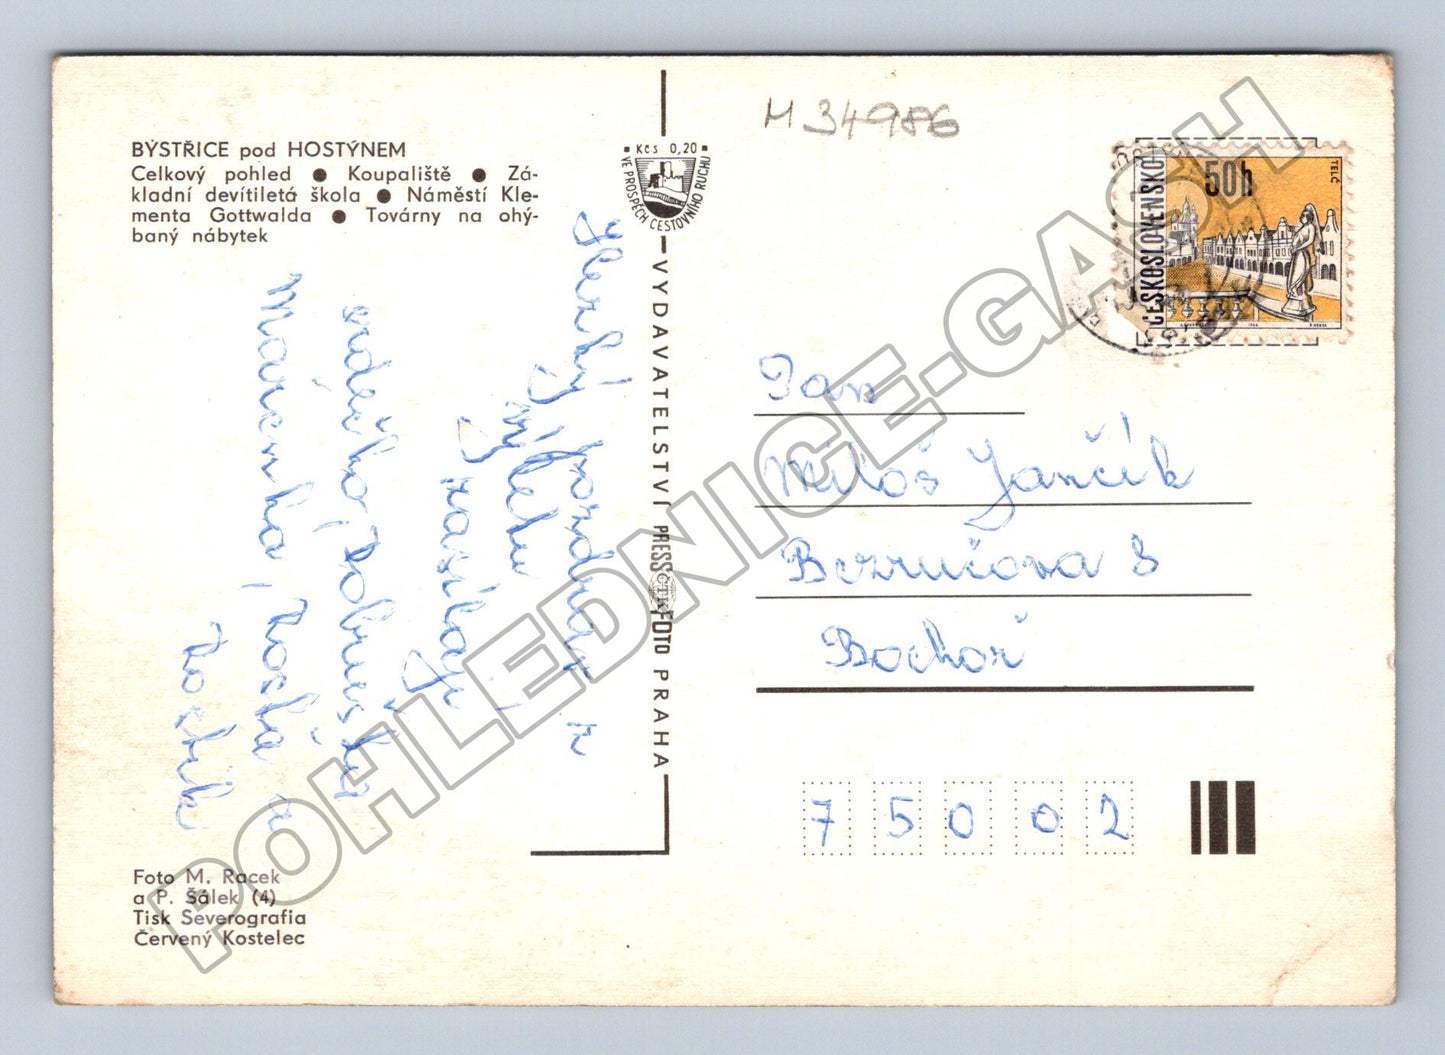 BYSTŘICE pod HOSTÝNEM
Celkový pohled ● Koupaliště ● Zá-
kladní devítiletá škola ● Náměstí Kle-
menta Gottwalda ● Továrny na ohý-
baný nábytek
Kčs 0,20
VE PROSPĚCH CESTOVNÍHO RUCHU
VYDAVATELSTVÍ PRESSFOTO PRAHA
ČTK
M 34986
ČESKOSLOVENSKO
50h
TELČ
Hezký pozdrav z
výletu
zasílají
srdečně, Dobuešká
Mařenka, Zochá a
Zochik
Pan
Miloš Jančík
Bezručova 8
Bochoř
75002
Foto M. Racek
a P. Šálek (4)
Tisk Severografia
Červený Kostelec
POHLEDNICE-GASH